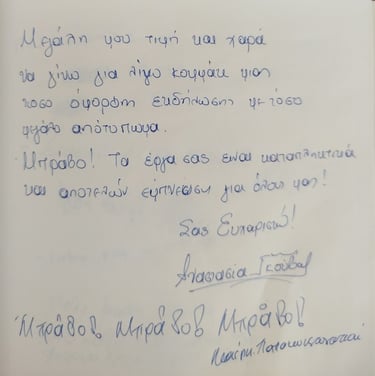 Μεγάλη μου τιμή και χαρά
να γίνω για λίγο κομμάτι μιας
τόσο όμορφης εκδήλωσης με τόσο
μεγάλο αποτύπωμα.
Μπράβο! Τα έργα σας είναι καταπληκτικά
και αποτελούν έμπνευση για όλους μας!
Σας Ευχαριστώ!
Αναστασία
Μπράβο Μπράβο Μπράβο